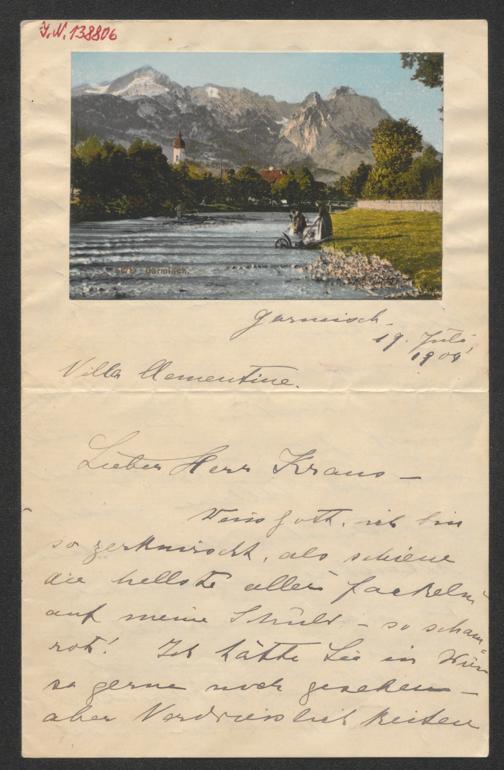 J.N. 138806
Garmisch.
Garmisch.
19. Juli,
1904
Villa Clementine.
Lieber Herr Kraus –
Weiss Gott, ich bin
so zerknirscht, als schiene
die hellste aller Fackeln
auf meine Schuld – so scham=
rot! Ich hätte Sie in Wien
so gerne noch gesehen –
aber Verdriesslichkeiten